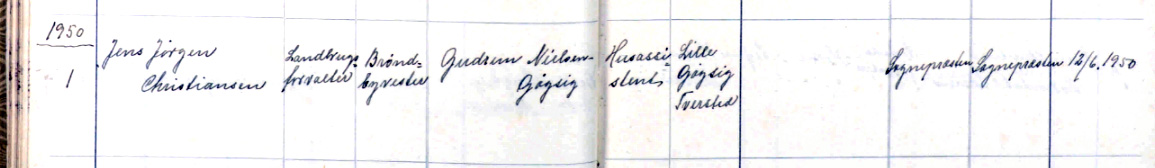 1950
1
Jens Jörgen
Christiansen
Landbrugs-
forvalter
Brönd=
byvester
Gudrun Nielsen-
Gögsig
Husassi=
stent,
Lille
Gögsig
Tversted
Sognepræsten
Sognepræsten
12/6. 1950